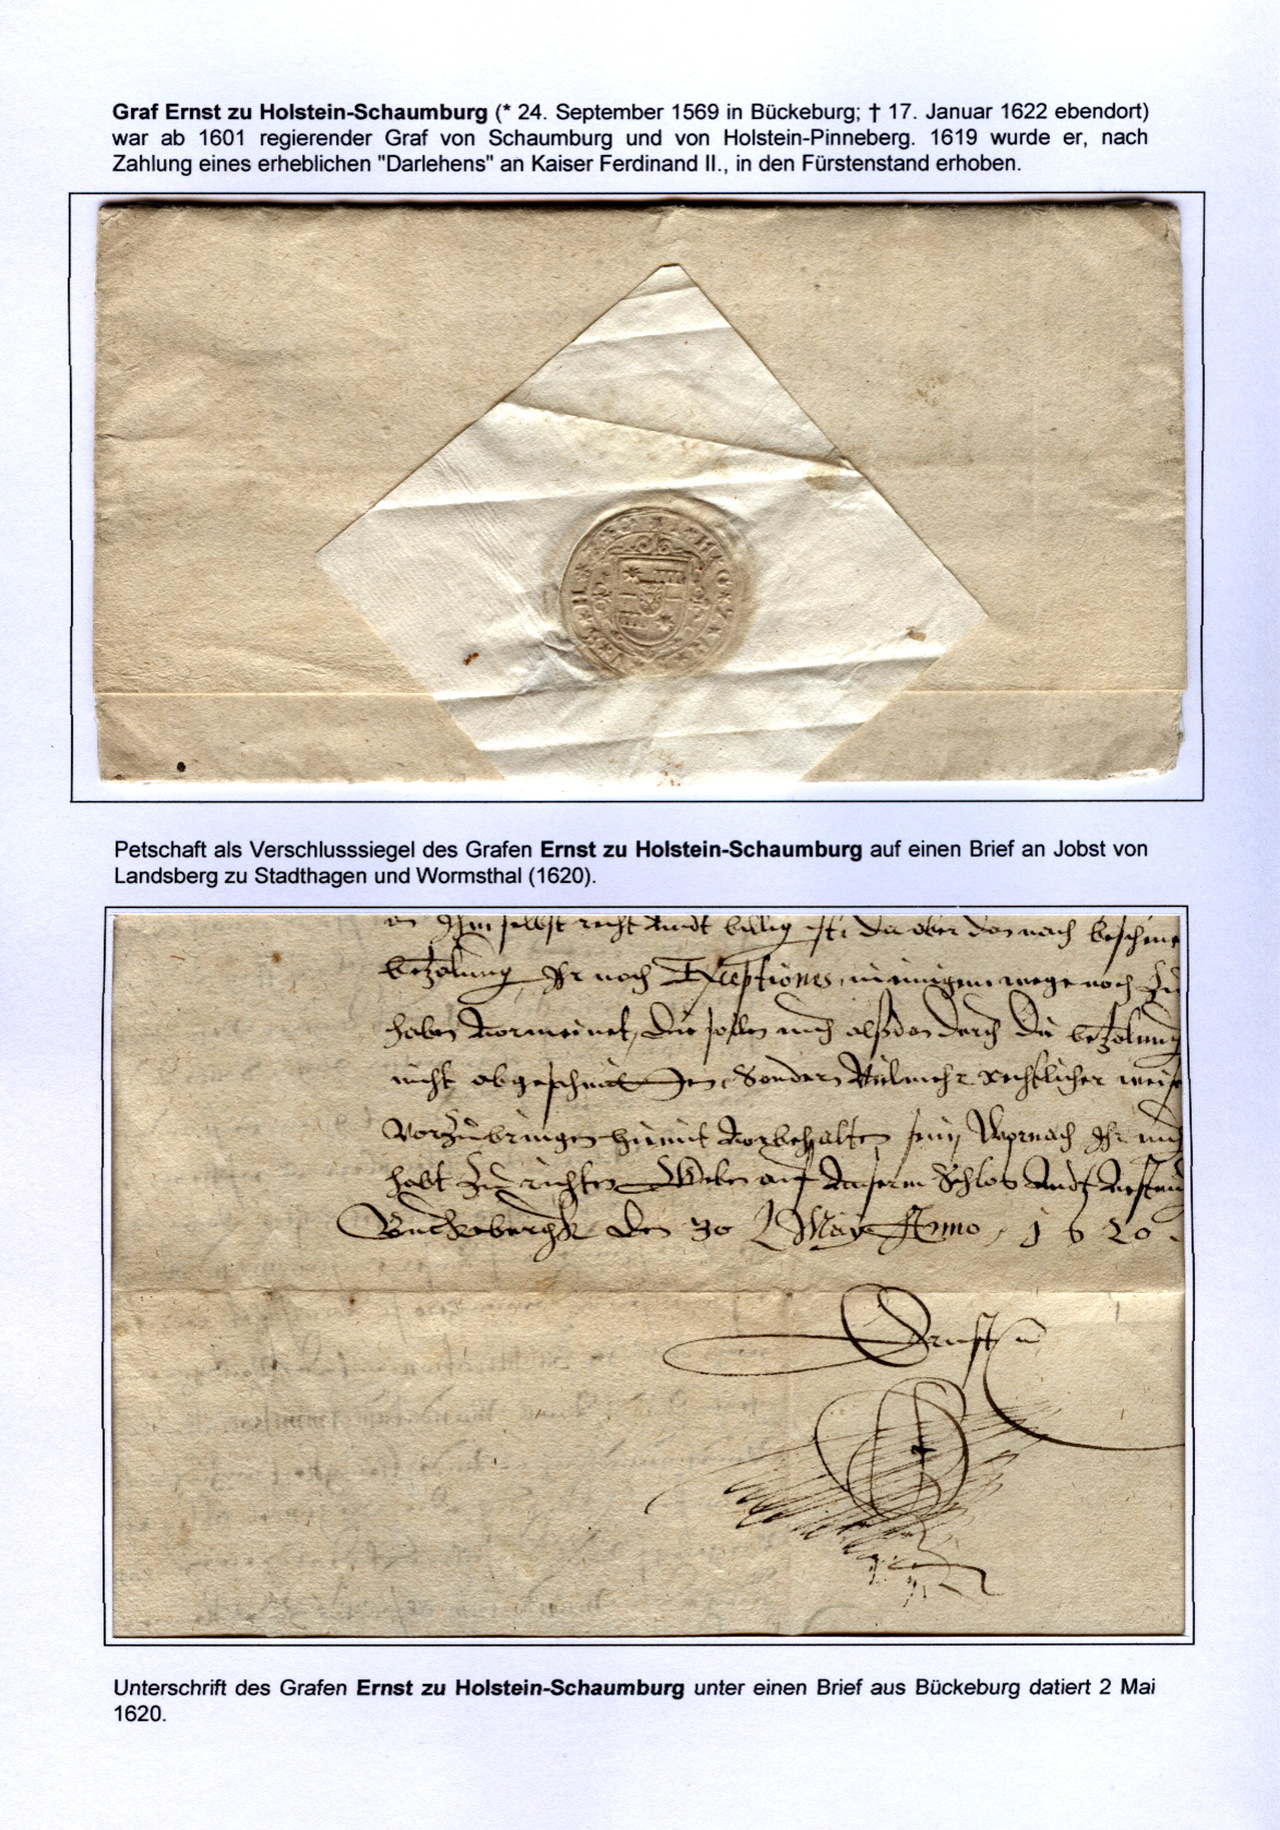 Graf Ernst zu Holstein-Schaumburg (* 24. September 1569 in Bückeburg; † 17. Januar 1622 ebendort)
war ab 1601 regierender Graf von Schaumburg und von Holstein-Pinneberg. 1619 wurde er, nach
Zahlung eines erheblichen "Darlehens" an Kaiser Ferdinand II., in den Fürstenstand erhoben.
Petschaft als Verschlusssiegel des Grafen Ernst zu Holstein-Schaumburg auf einen Brief an Jobst von
Landsberg zu Stadthagen und Wormsthal (1620).
selbst recht undt billig ist, da aber dar nach
bezalung, Ihr noch Exceptiones, in einigem wege noch zu
haben vormeinet, die sollen auch alßdan durch die bezalung
nicht abgeschnitten, Sondern vielmehr rechtlicher weise
vorzubringen hiemit vorbehalten sein, Wornach Ihr
habt zu richten, Geben auf unserm Schlos undt
Buckebergk den 30 May Anno, 1620.
Ernst
Unterschrift des Grafen Ernst zu Holstein-Schaumburg unter einen Brief aus Bückeburg datiert 2 Mai
1620.